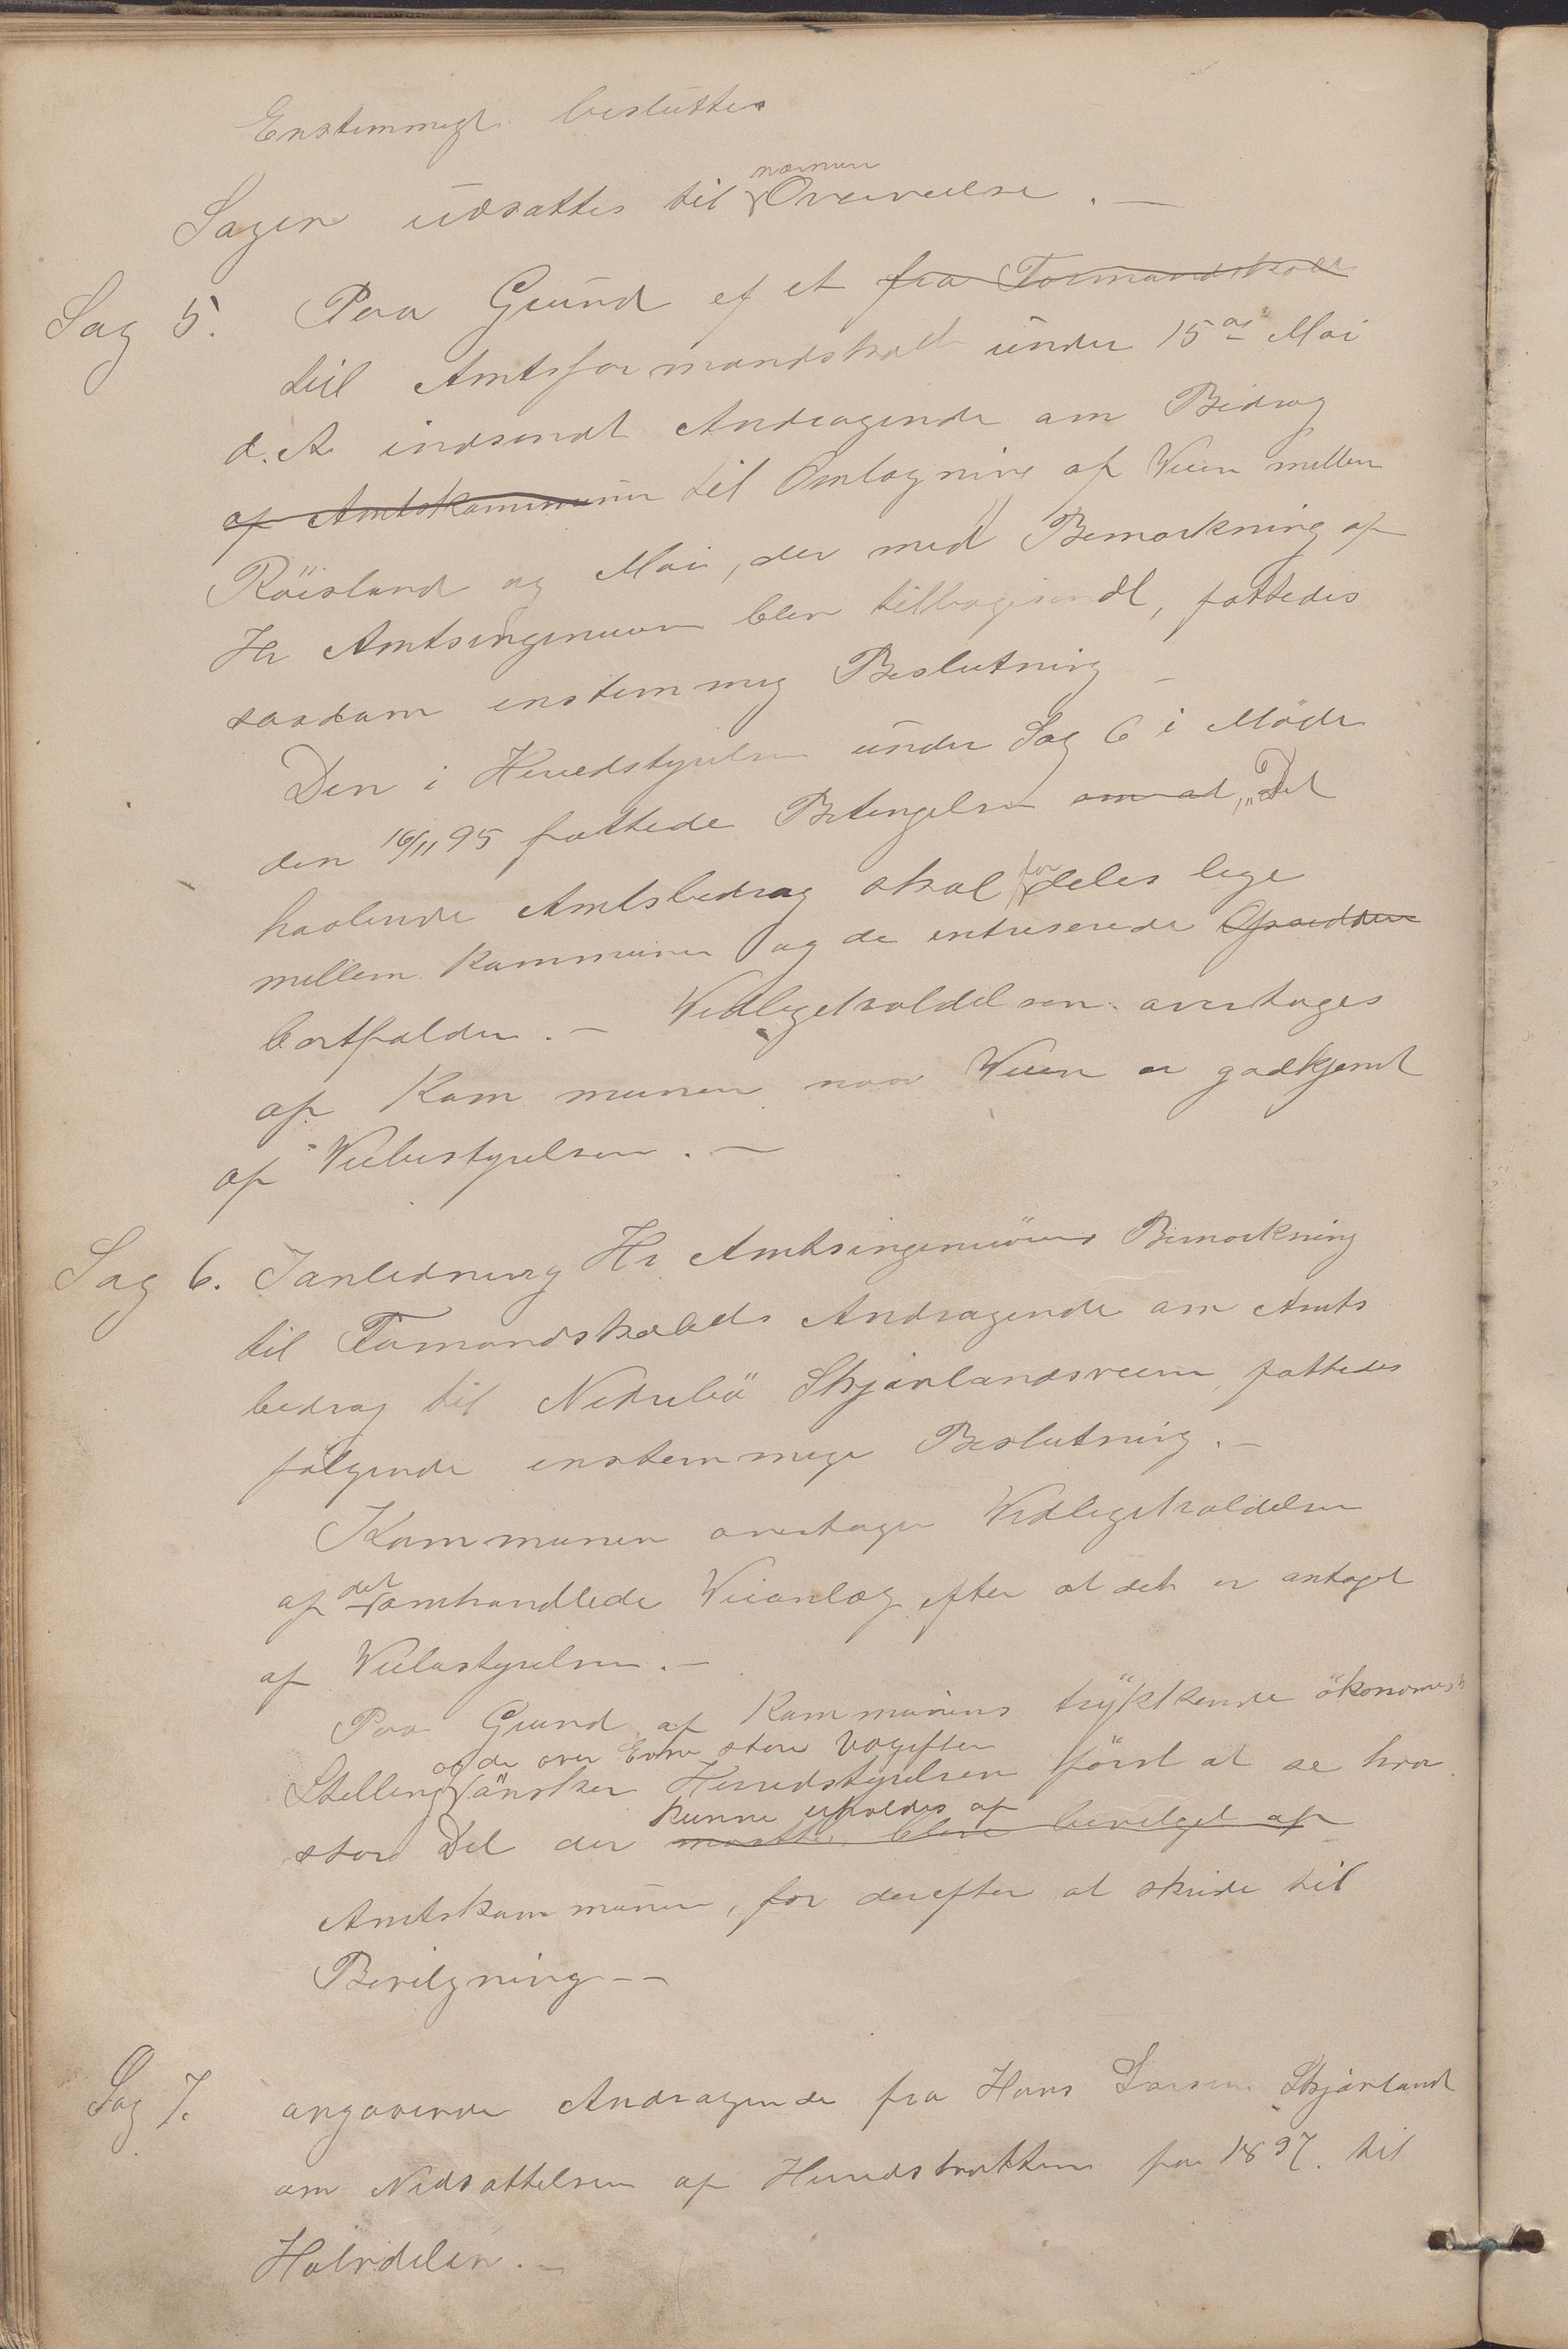 Enstemmigt besluttes
Sagen udsattes til nærmere Overveielse . —
Sag 5. Paa Grund af et fra Formandskab
til Amtsformandskab under 15de Mai
d. A. indsendt Andragende om Bidrag
af Amtskommunen til Omlægning af Veien mellem
Röisland og Moi, der med Bemærkning af
Hr Amtsingeniøren blev tilbagesendt, fattedes
saadan enstemmig Beslutning —
Den i Herredstyrelsen under Sag 6 i Möde
den 16/11 95 fattede Betingelse om at „Det
haabende Amtsbidrag skal fordeles lige
mellem Kommunen og de intreserede Opsiddere
bortfalder. — Vedligeholdelsen overtages
af Kommunen naar Veien er godkjent
af Veibestyrelsen. —
Sag 6. Ianledning Hr Amtsingeniörens Bemærkning
til Formandskabets Andragende om Amts
bidrag til Nedrebö Skjævlandsveien, fattedes
fölgende enstemmige Beslutning. —
Kommunen overtager Vedligeholdelsen
af det omhandlede Veianlæg efter at det er antaget
af Veibestyrelsen. —
Paa Grund af Kommunens trykkende ökonomisk
Stilling og de over Evne store Udgifter önsker Herredstyrelsen först at se hvor
stor Del der maatte blive bevilget af kunne erholdes af
Amtskommunen, for derefter at skride til
Bevilgning — —
Sag 7. angaaende Andragende fra Hans Larsen Skjævland
om Nedsættelsen af Herredskatten for 1897 til
Halvdelen. —